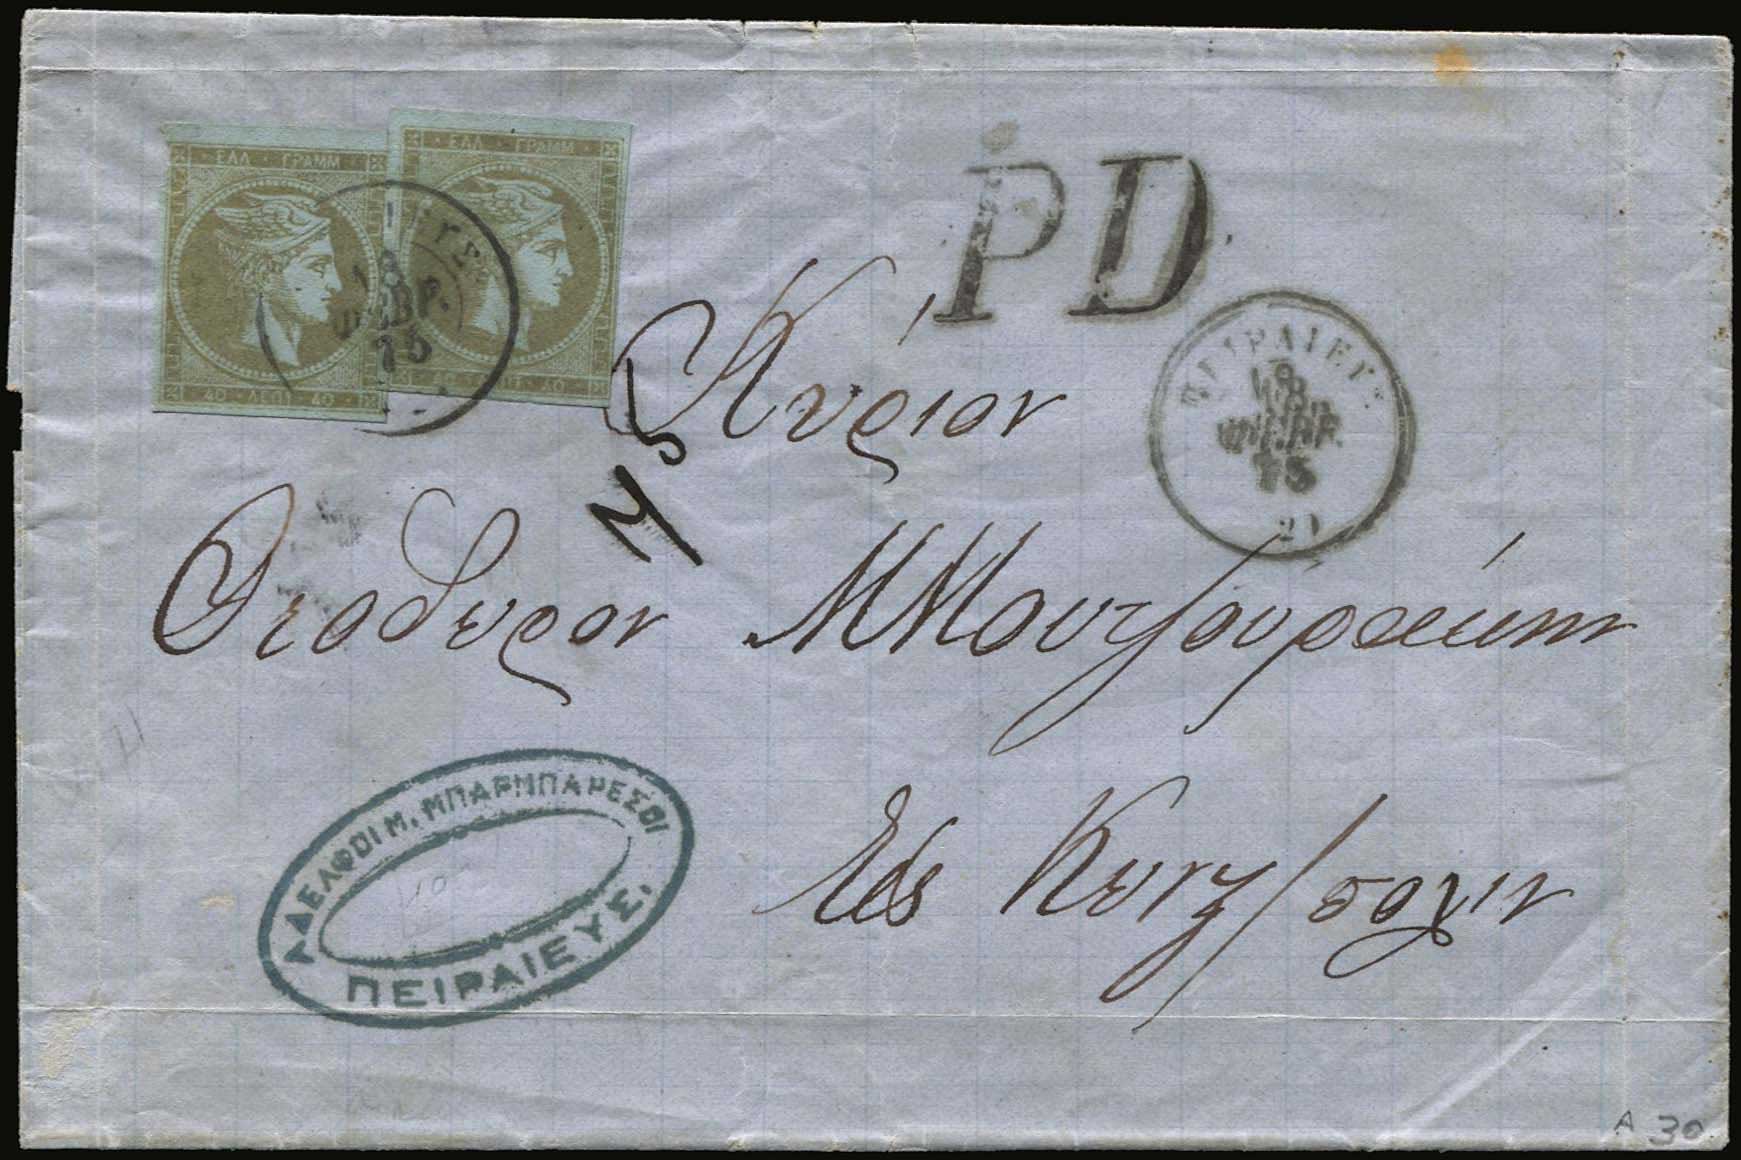 ΕΛΛ · ΓΡΑΜΜ
40 · ΛΕΠΤ · 40
ΕΛΛ · ΓΡΑΜΜ
40 · ΛΕΠΤ · 40
18
ΦΕΒΡ.
75
PD
ΠΕΙΡΑΙΕΥΣ
18
ΦΕΒΡ.
75
Κύριον
Θεοδωρον Μ Μουτζουράκην
Εἰς Κων/πολιν
ΑΔΕΛΦΟΙ Μ. ΜΠΑΡΜΠΑΡΕΣΟΙ
ΠΕΙΡΑΙΕΥΣ.
A 30